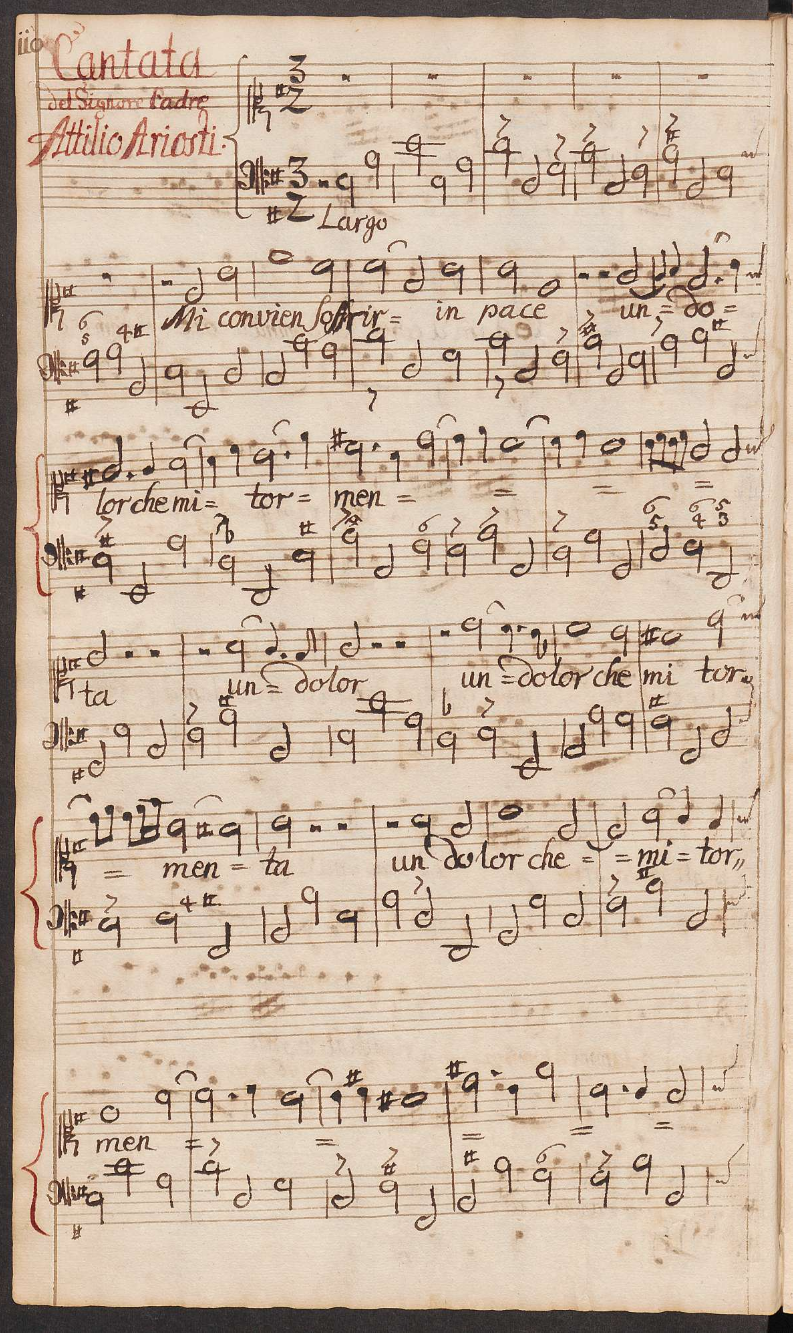 110
Cantata
del Signore Padre
Attilio Ariosti.
3
2
3
2
Largo
Mi convien soffrir= in pace un= do=
lor che mi= tor= men = = = =
ta un= dolor un=dolor che mi tor=
= men = ta un dolor che = = mi = tor,,
men = = = = =